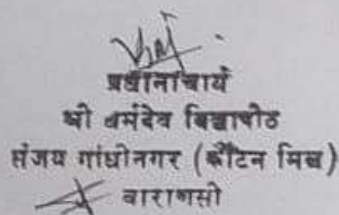 प्रधानाचार्य
श्री धर्मदेव विद्यापीठ
संजय गांधीनगर (कौटिन मिल)
वाराणसी